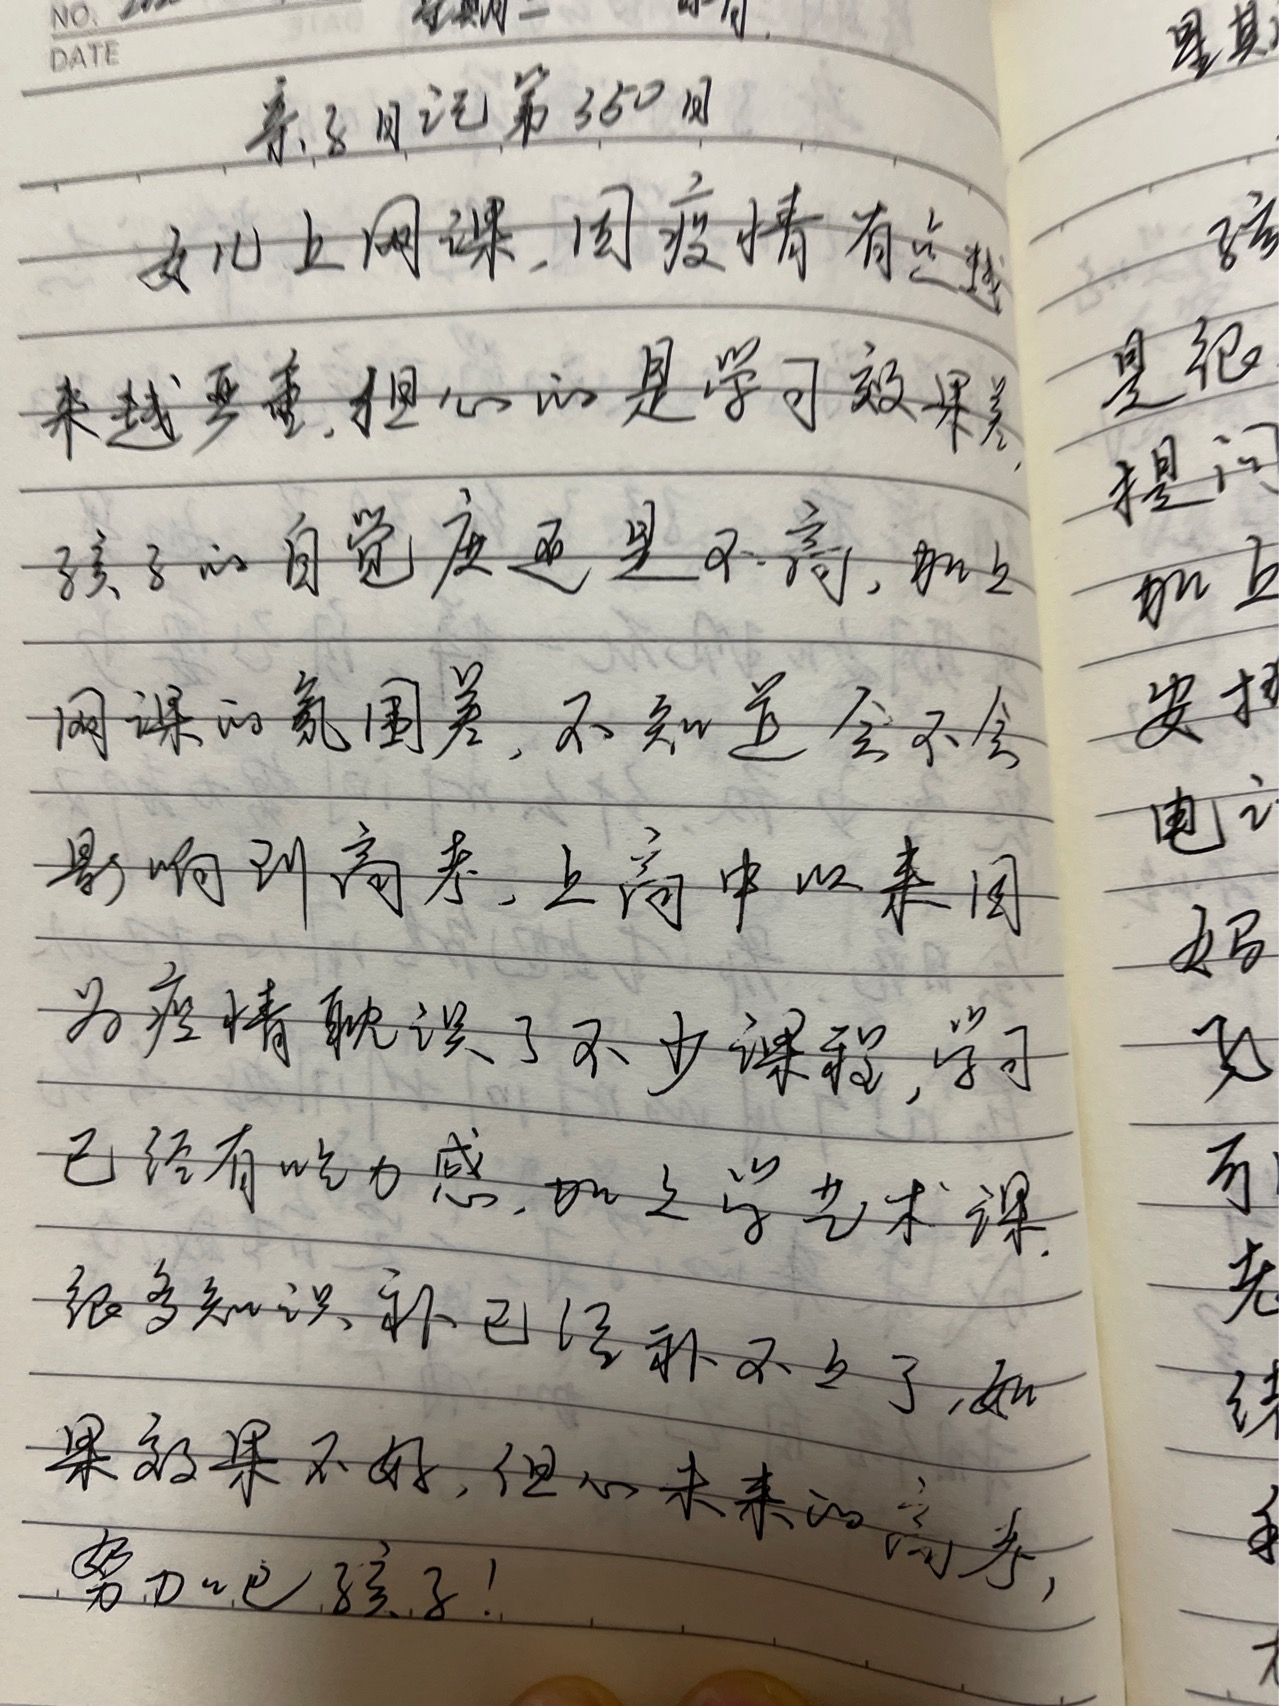 NO.
DATE
星期二
亲子日记第350日
女儿上网课,因疫情有点越
来越严重,担心的是学习效果差,
孩子的自觉度还是不高,加上
网课的氛围差,不知道会不会
影响到高考,上高中以来因
为疫情耽误了不少课程,学习
已经有吃力感,加上学艺术课.
很多知识补已经补不上了,如
果效果不好,但心未来的高考,
努力吧孩子!
星其
孩
是很
提问
加上
安排
电
妈
可
老